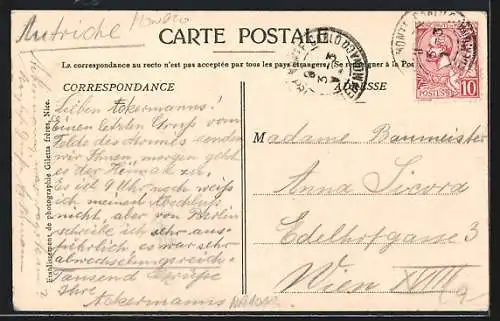 Autriche
MONACO
CARTE POSTALE
La correspondance au recto n'est pas acceptée par tous les pays étrangers. (Se renseigner à la Poste
CORRESPONDANCE
ADRESSE
MONTE-CARLO
POSTES
10
Etablissements de photographie Giletta frères, Nice.
Lieben Ackermanns!
Einen letzten Gruss vom
Felde des
senden
wir Ihnen, morgen geht
es der Heimat zu,
Es ist 9 Uhr noch weiß
ich meinen Abschluß
nicht, aber von Berlin
schreibe ich sehr aus-
führlich, es war sehr
abwechselungsreich.
Tausend Grüße
Ihre
Ackermanns
Madame Baumeister
Anna
Edelhofgasse 3
Wien XVIII